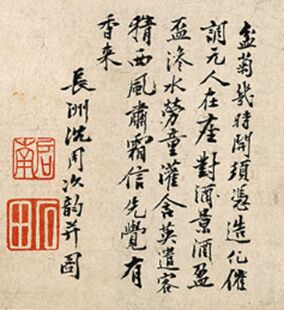 盆菊幾時開須憑造化催
調元人在座對酒景酒盈
盃滲水勞童灌含英遣客
猜西風肅霜信先覺有
香来
長洲沈周次韻并圖
啟南
石田